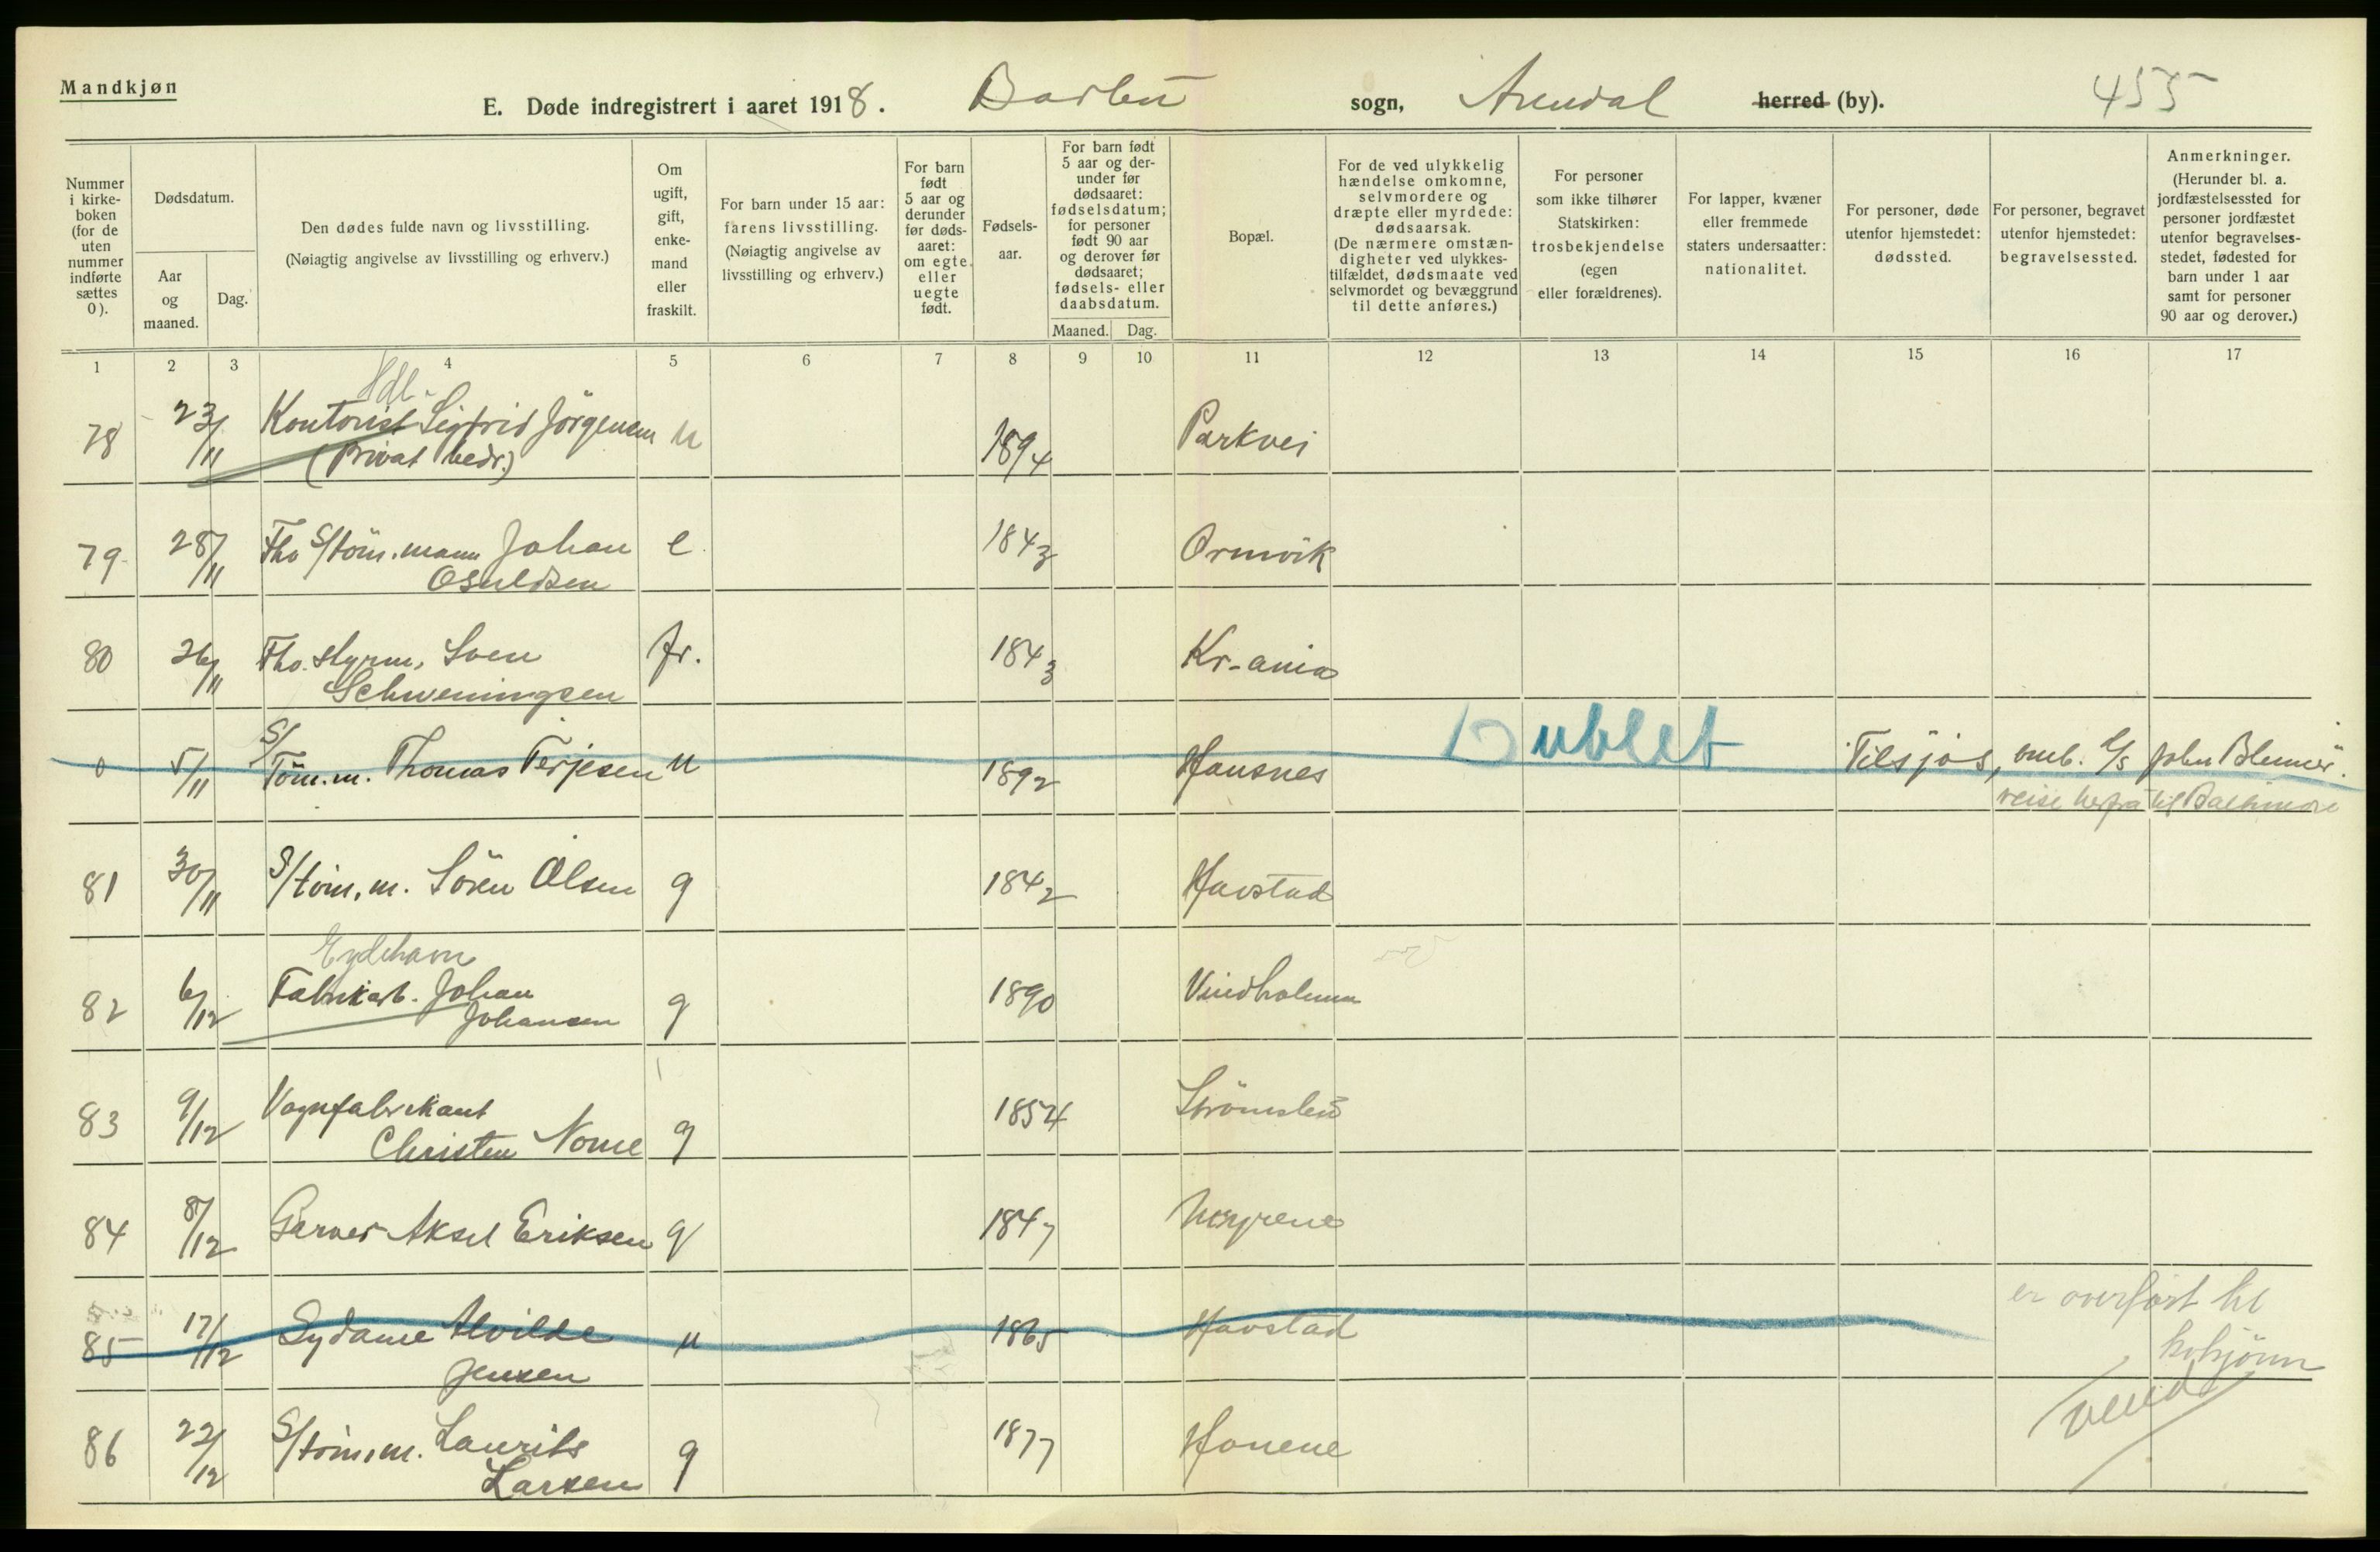 Mandkjøn
E. Døde indregistrert i aaret 1918. Barbu sogn, Arendal herred (by). 455
Nummer i kirke-boken (for de uten nummer indførte sættes 0).
Dødsdatum.
Aar og maaned.
Dag.
Den dødes fulde navn og livsstilling.
(Nøiagtig angivelse av livsstilling og erhverv.)
Om ugift, gift, enke-mand eller fraskilt.
For barn under 15 aar: farens livsstilling.
(Nøiagtig angivelse av livsstilling og erhverv.)
For barn født 5 aar og derunder før døds-aaret: om egte eller uegte født.
Fødsels-aar.
For barn født 5 aar og der-under før dødsaaret: fødselsdatum; for personer født 90 aar og derover før dødsaaret; fødsels- eller daabsdatum.
Maaned. Dag.
Bopæl.
For de ved ulykkelig hændelse omkomne, selvmordere og dræpte eller myrdede: dødsaarsak.
(De nærmere omstæn-digheter ved ulykkes-tilfældet, dødsmaate ved selvmordet og bevæggrund til dette anføres.)
For personer som ikke tilhører Statskirken: trosbekjendelse (egen eller forældrenes).
For lapper, kvæner eller fremmede staters undersaatter: nationalitet.
For personer, døde utenfor hjemstedet: dødssted.
For personer, begravet utenfor hjemstedet: begravelsessted.
Anmerkninger.
(Herunder bl. a. jordfæstelsessted for personer jordfæstet utenfor begravelses-stedet, fødested for barn under 1 aar samt for personer 90 aar og derover.)
1 2 3 4 5 6 7 8 9 10 11 12 13 14 15 16 17
Hdl.
78 23/11 Kontorist Sigfrid Jörgensen u 1894 Parkvei
(privat bedr.)
79 28/11 Fho S/töm.mann Johan e 1843 Ormvik
Osuldsen
80 26/11 Fho. styrm. Sven fr. 1843 Kr-ania
Schweningsen
0 5/11 S/Töm.m. Thomas Terjesen u 1892 Hausnes Dublet Tilsjøs, omb. S/s John Blumer.
reise herfra til Baltimore
81 30/11 S/töm.m. Sören Olsen g 1842 Havstad
Eydehavn
82 6/12 Fabrikarb. Johan g 1890 Vindholmen
Johansen
83 9/12 Vognfabrikant 1854 Strömsbu
Christen Nome g
84 8/12 Garver Aksel Eriksen g 1847 Myrene
85 17/12 Sydame Alvilde u 1865 Havstad er overført til
Jensen kvkjönn
vend
86 22/12 S/töm.m. Laurits g 1877 Honene
Larsen